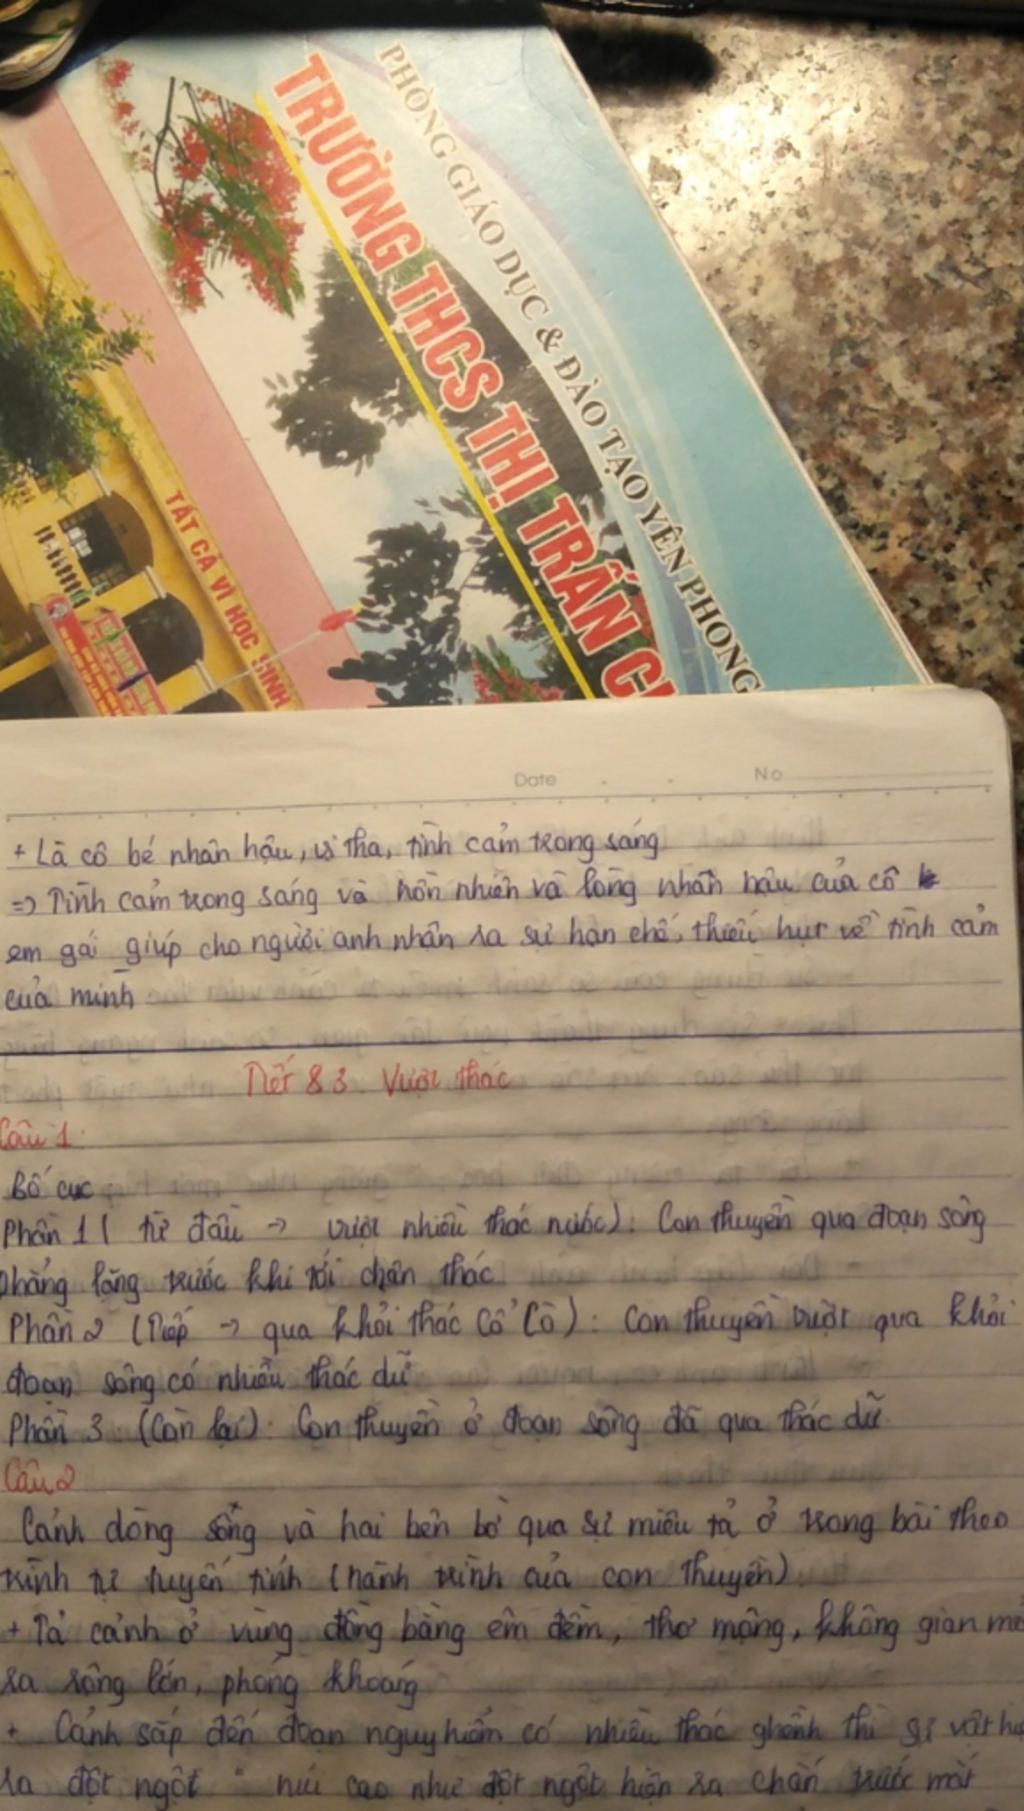 PHÒNG GIÁO DỤC & ĐÀO TẠO YÊN PHONG
TRƯỜNG THCS THỊ TRẤN
TẤT CẢ VÌ HỌC SINH
Date No
+ Là cô bé nhân hậu, vị tha, tình cảm trong sáng
=> Tình cảm trong sáng và hồn nhiên và lòng nhân hậu của cô
em gái giúp cho người anh nhận ra sự hạn chế, thiếu hụt về tình cảm
của mình
Tiết 83 Vượt thác
Câu 1:
Bố cục
Phần 1 ( từ đầu -> vượt nhiều thác nước): Con thuyền qua đoạn sông
phẳng lặng trước khi tới chân thác
Phần 2 (Tiếp -> qua khỏi thác Cổ Cò): Con thuyền vượt qua khỏi
đoạn sông có nhiều thác dữ
Phần 3 (Còn lại): Con thuyền ở đoạn sông đã qua thác dữ
Câu 2
Cảnh dòng sông và hai bên bờ qua sự miêu tả ở trong bài theo
trình tự tuyến tính (hành trình của con thuyền)
+ Tả cảnh ở vùng đồng bằng êm đềm, thơ mộng, không gian mở
ra rộng lớn, phóng khoáng
+ Cảnh sắp đến đoạn nguy hiểm có nhiều thác ghềnh thì sự vật
ra đột ngột " núi cao như đột ngột hiện ra chắn trước mặt